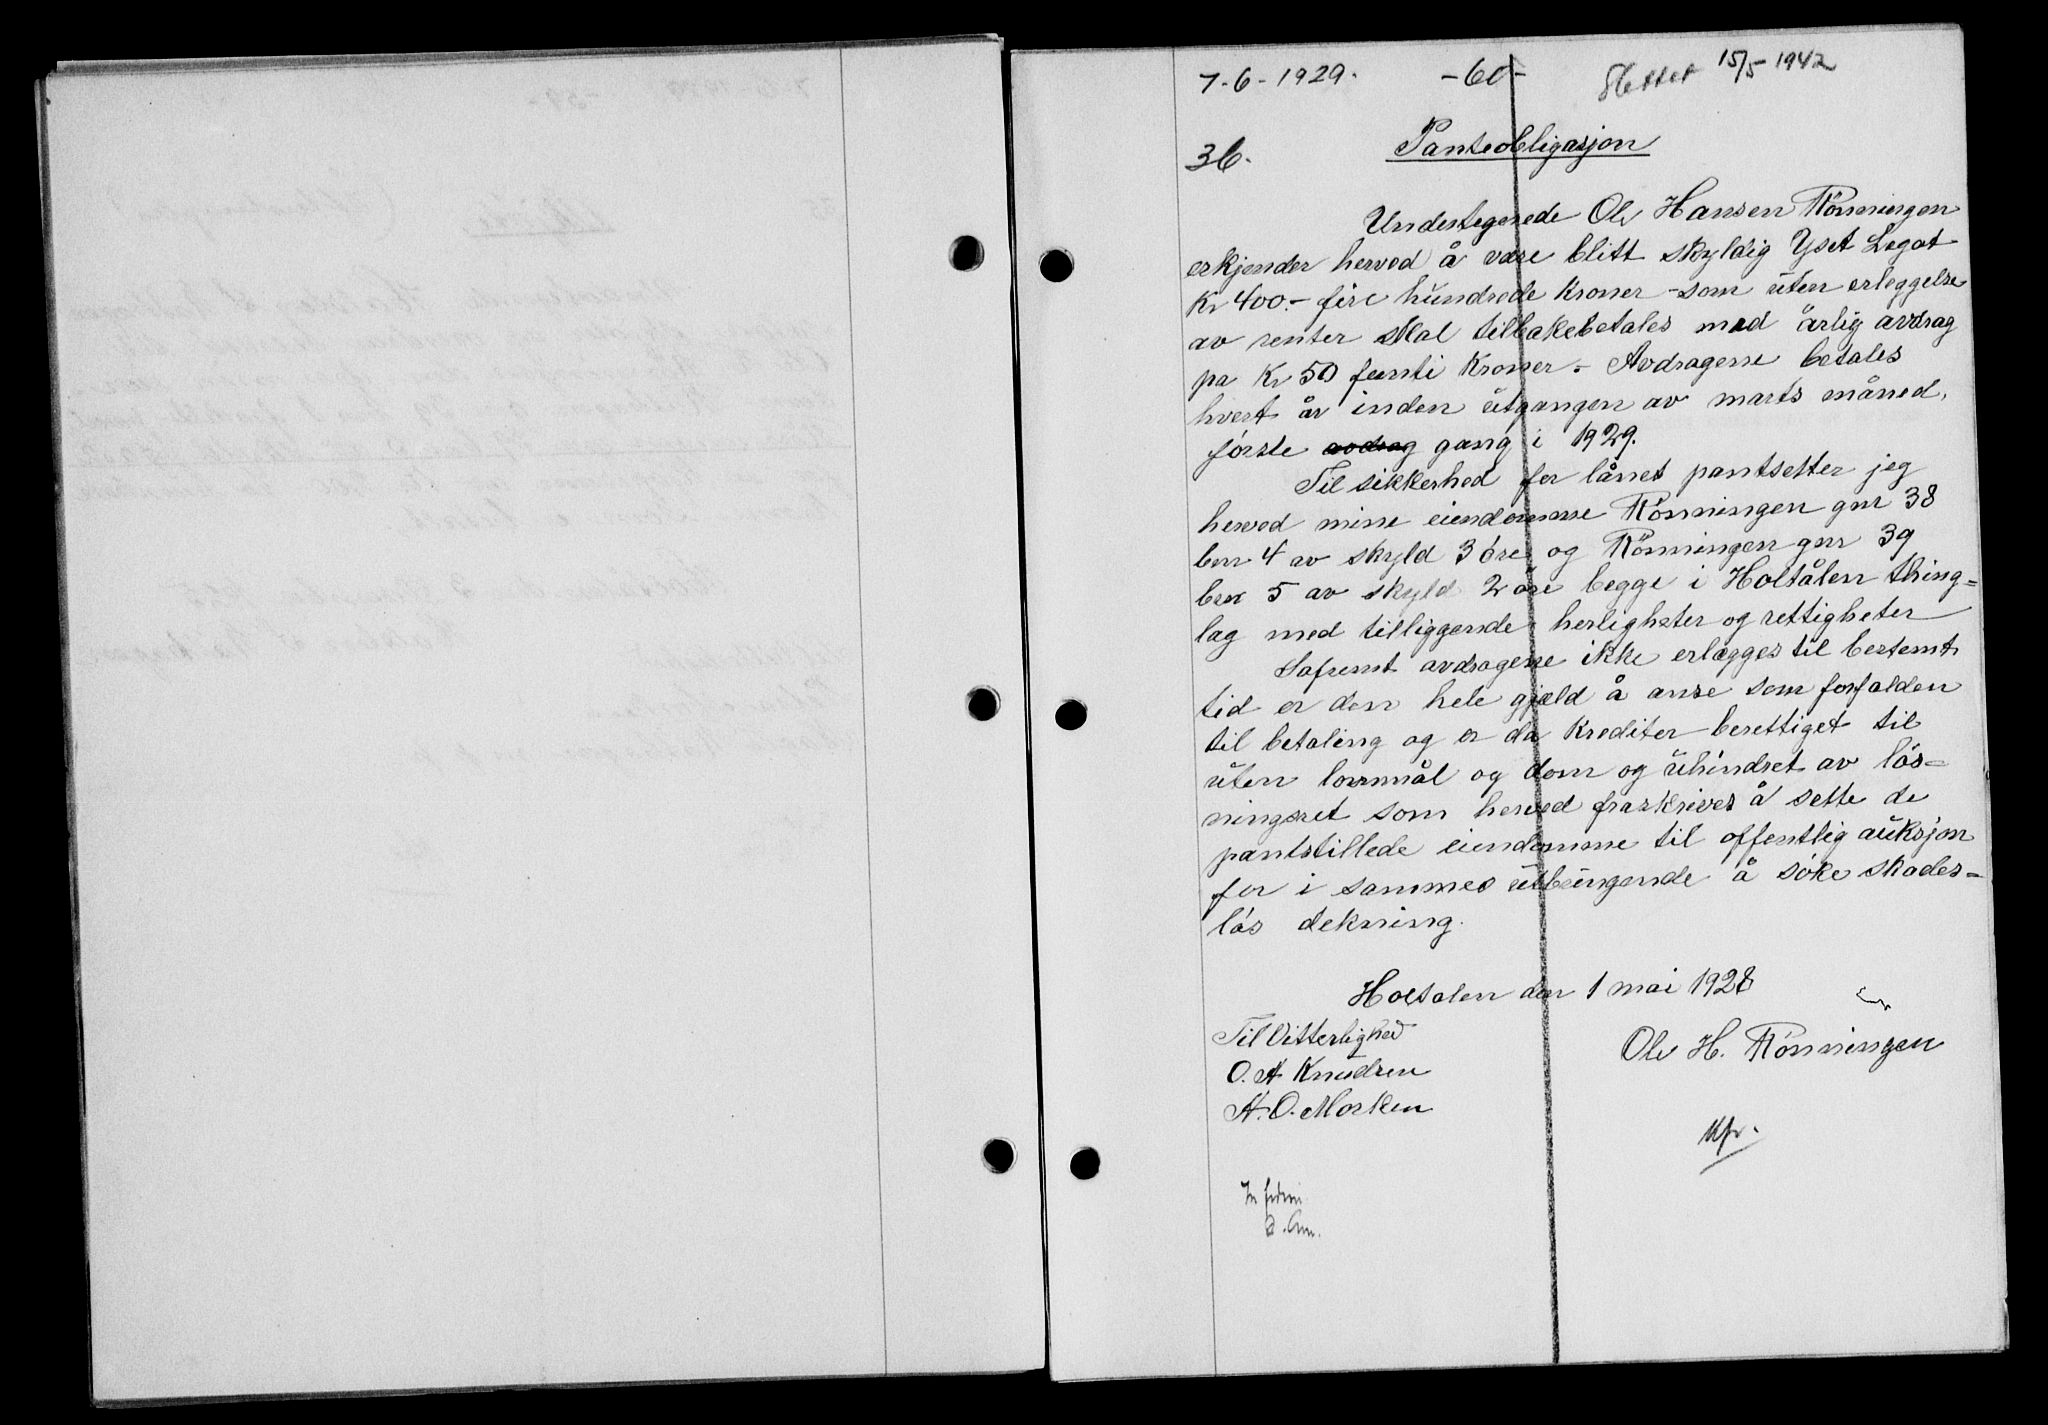 7-6-1929. -60- Slettet 15/5-1942
36. Panteobligasjon
Undertegnede Ole Hansen Rönningen
erkjender herved å være blitt skyldig Yset Legat
Kr 400.- fire hundrede Kroner - som uten erleggelse
av renter skal tilbakebetales med årlig avdrag
pa Kr 50 femti Kroner. Avdragene betales
hvert år inden utgangen av marts måned,
förste avdrag gang i 1929.
Til sikkerhed for lånet pantsetter jeg
herved mine eiendomme Rönningen gnr 38
bnr 4 av skyld 3 öre og Rönningen gnr 39
bnr 5 av skyld 2 öre begge i Holtålen thing=
lag med tilliggende herligheter og rettigheter
Safremt avdragene ikke erlægges til bestemt
tid er den hele gjæld å anse som forfalden
til betaling og er da krediter berettiget til
uten lovmål og dom og uhindret av lös=
ningsret som herved fraskrives å sette de
pantstillede eiendomme til offentlig auksjon
for i sammes utbringende å söke skades=
lös dekning.
Holtalen den 1 mai 1928
Til Vitterlighed
Ole H. Rönningen
O. A Knudsen
A. O. Morken